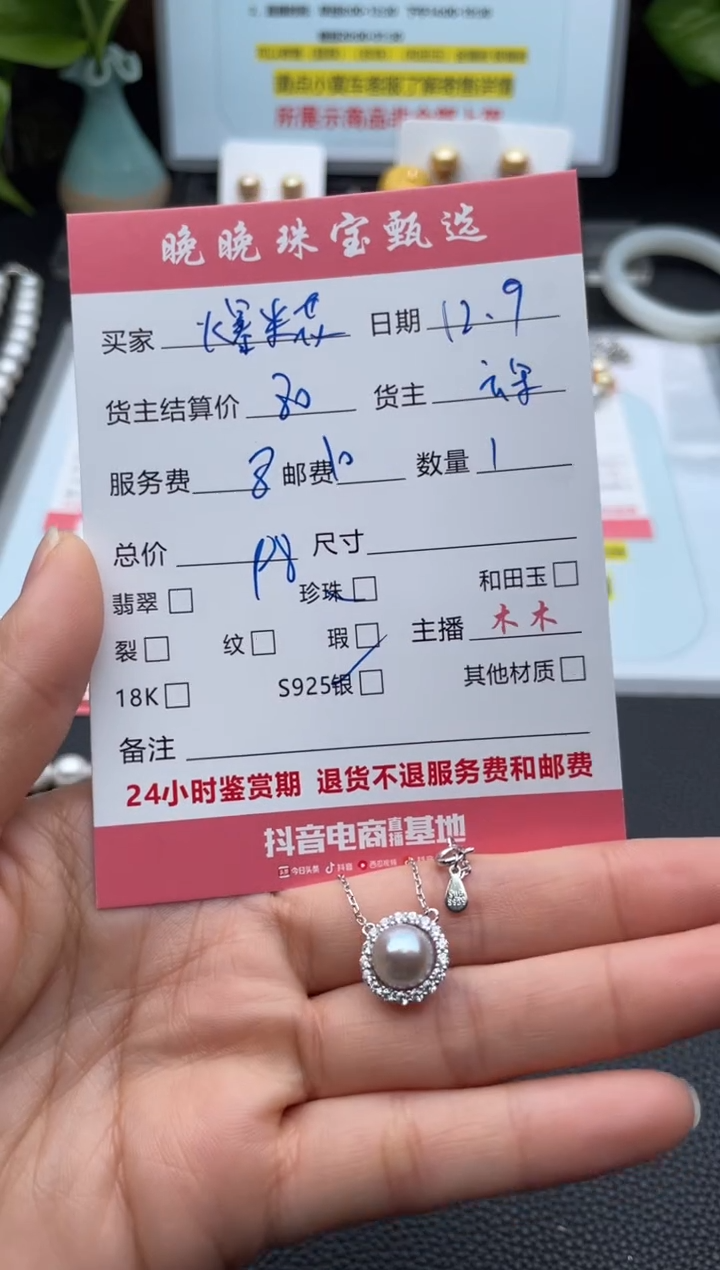 所展示商品
晚晚珠宝甄选
买家 爆米花 日期 12.9
货主结算价 80 货主
服务费 8 邮费 10 数量 1
总价 98 尺寸
翡翠 珍珠 和田玉
裂 纹 瑕 主播 木木
18K S925银 其他材质
备注
24小时鉴赏期 退货不退服务费和邮费
抖音电商直播基地
今日头条 抖音 西瓜视频